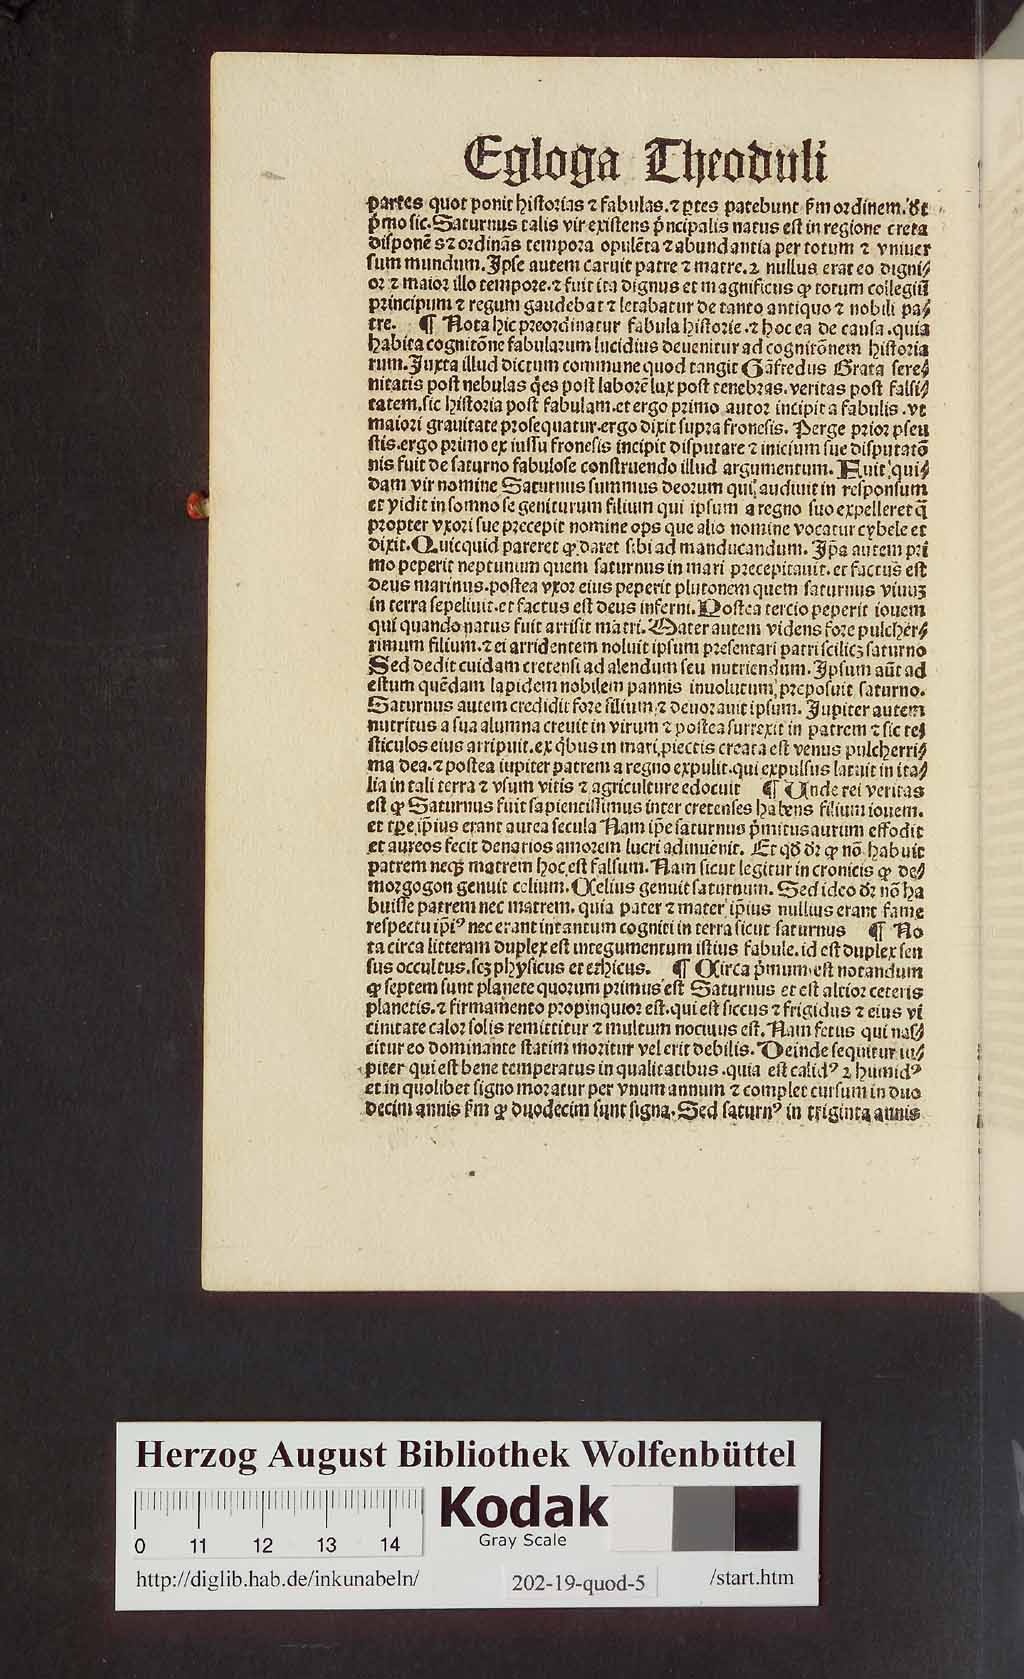 Egloga Theoduli
partes quot ponit historias ⁊ fabulas.⁊ ꝑtes patebunt ẜm ordinem.
pͥmo sic. Saturnus talis vir existens pͥncipalis natus est in regione creta
disponēs ⁊ ordinās tempora opulēta ⁊ abundantia per totum ⁊ vniuer
sum mundum. Ipse autem caruit patre ⁊ matre.⁊ nullus erat eo digni⸗
or ⁊ maior illo tempore.⁊ fuit ita dignus et magnificus ꝙ totum collegiū
principum ⁊ regum gaudebat ⁊ letabatur de tanto antiquo ⁊ nobili pa⸗
tre. ¶ Nota hic preordinatur fabula historie.⁊ hoc ea de causa.quia
habita cognitōne fabularum lucidius deuenitur ad cognitōnem historia
rum. Juxta illud dictum commune quod tangit Gāfredus Grata sere⸗
nitatis post nebulas qͥes post laborē lux post tenebras.veritas post falsi⸗
tatem.sic historia post fabulam.et ergo primo autor incipit a fabulis.vt
maiori grauitate prosequatur.ergo dixit supra fronesis. Perge prior pseu
stis.ergo primo ex iussu fronesis incipit disputare ⁊ inicium sue disputatō
nis fuit de saturno fabulose construendo illud argumentum. Fuit qui⸗
dam vir nomine Saturnus summus deorum qui audiuit in responsum
et vidit in somno se geniturum filium qui ipsum a regno suo expelleret q̄
propter vxori sue precepit nomine ops que alio nomine vocatur cybele et
dixit. Quicquid pareret ꝙ daret sibi ad manducandum. Ip̄a autem pri
mo peperit neptunum quem saturnus in mari precepitauit.et factus est
deus marinus.postea vxor eius peperit plutonem quem saturnus viuuꝫ
in terra sepeliuit.et factus est deus inferni. Postea tercio peperit iouem
qui quando natus fuit arrisit matri. Mater autem videns fore pulcher⸗
rimum filium.⁊ ei arridentem noluit ipsum presentari patri scilicꝫ saturno
Sed dedit cuidam cretensi ad alendum seu nutriendum. Ipsum aūt ad
estum quēdam lapidem nobilem pannis inuolutum preposuit saturno.
Saturnus autem credidit fore filium ⁊ deuorauit ipsum. Jupiter autem
nutritus a sua alumna creuit in virum ⁊ postea surrexit in patrem ⁊ sic te⸗
sticulos eius arripuit.ex qͥbus in mari piectis creata est venus pulcherri⸗
ma dea.⁊ postea iupiter patrem a regno expulit.qui expulsus latuit in ita⸗
lia in tali terra ⁊ vsum vitis ⁊ agriculture edocuit ¶ Unde rei veritas
est ꝙ Saturnus fuit sapientissimus inter cretenses habens filium iouem.
et tꝑe ip̄ius erant aurea secula Nam ip̄e saturnus pͥmitus aurum effodit
et aureos fecit denarios amorem lucri adinuenit. Et qd̄ dr̄ ꝙ nō habuit
patrem neqꝫ matrem hoc est falsum. Nam sicut legitur in cronicis ꝙ de⸗
morgogon genuit celium. Celius genuit saturnum. Sed ideo dr̄ nō ha
buisse patrem nec matrem. quia pater ⁊ mater ip̄ius nullius erant fame
respectu ip̄iꝰ nec erant intantum cogniti in terra sicut saturnus ¶ No
ta circa litteram duplex est integumentum istius fabule.id est duplex sen
sus occultus.scꝫ physicus et ethicus. ¶ Circa pͥmum est notandum
ꝙ septem sunt planete quorum primus est Saturnus et est altior ceteris
planetis.⁊ firmamento propinquior est.qui est siccus ⁊ frigidus ⁊ eius vi
cinitate calor solis remittitur ⁊ multum nociuus est. Nam fetus qui nas⸗
citur eo dominante statim moritur vel erit debilis. Deinde sequitur iu⸗
piter qui est bene temperatus in qualitatibus.quia est calidꝰ ⁊ humidꝰ
et in quolibet signo moratur per vnum annum ⁊ complet cursum in duo
decim annis ẜm ꝙ duodecim sunt signa. Sed saturnꝰ in triginta annis
Herzog August Bibliothek Wolfenbüttel
Kodak
Gray Scale
0 11 12 13 14
http://diglib.hab.de/inkunabeln/ 202-19-quod-5 /start.htm